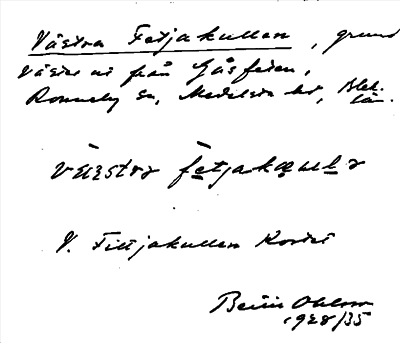 Västra Fetjakullen, grund
väster ut från Gåsfeten,
Ronneby sn, Medelsta hd, Blek. län.
västra fetjakullen
V. Fittjakullen Kortet
Bertil Ohlsson
1928/35